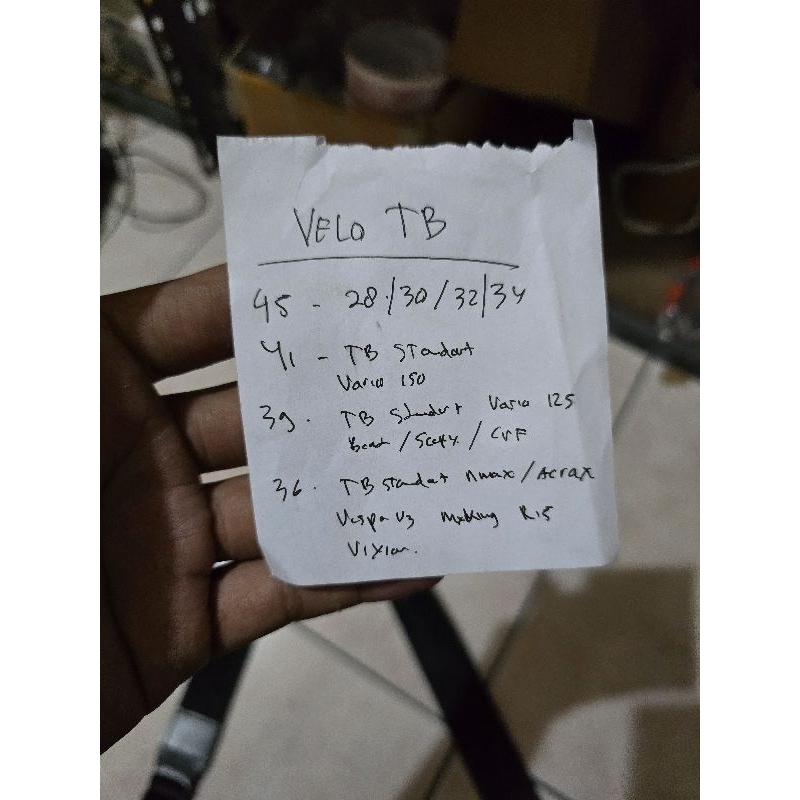 VELO TB
45 - 28/30/32/34
41 - TB Standart
Vario 150
39. TB Standart Vario 125
Beat / Scoopy / CVF
36. TB standat nmax / Aerox
Vespa V3 R15
Vixion.